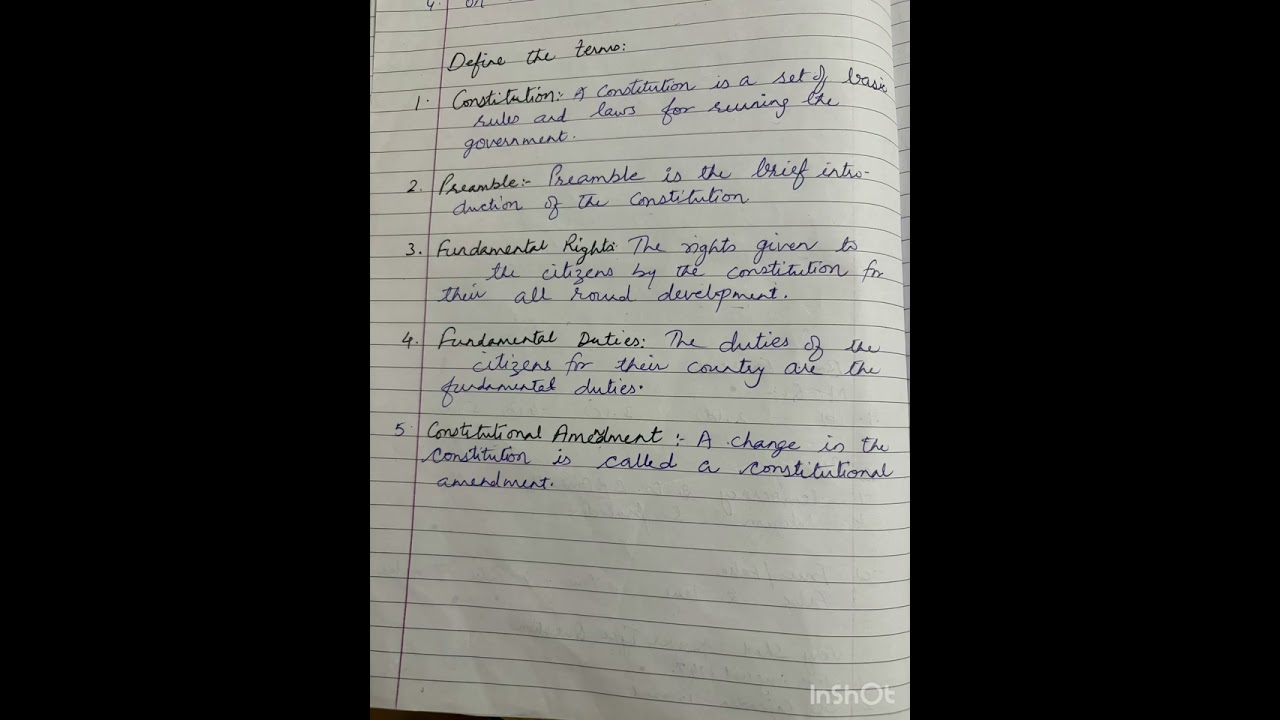 4. on
Define the terms:
1. Constitution:- A constitution is a set of basic
rules and laws for running the
government.
2. Preamble:- Preamble is the brief intro-
duction of the constitution
3. Fundamental Rights: The rights given to
the citizens by the constitution for
their all round development.
4. Fundamental Duties: The duties of the
citizens for their country are the
fundamental duties.
5. Constitutional Amendment :- A change in the
constitution is called a constitutional
amendment.
InShOt